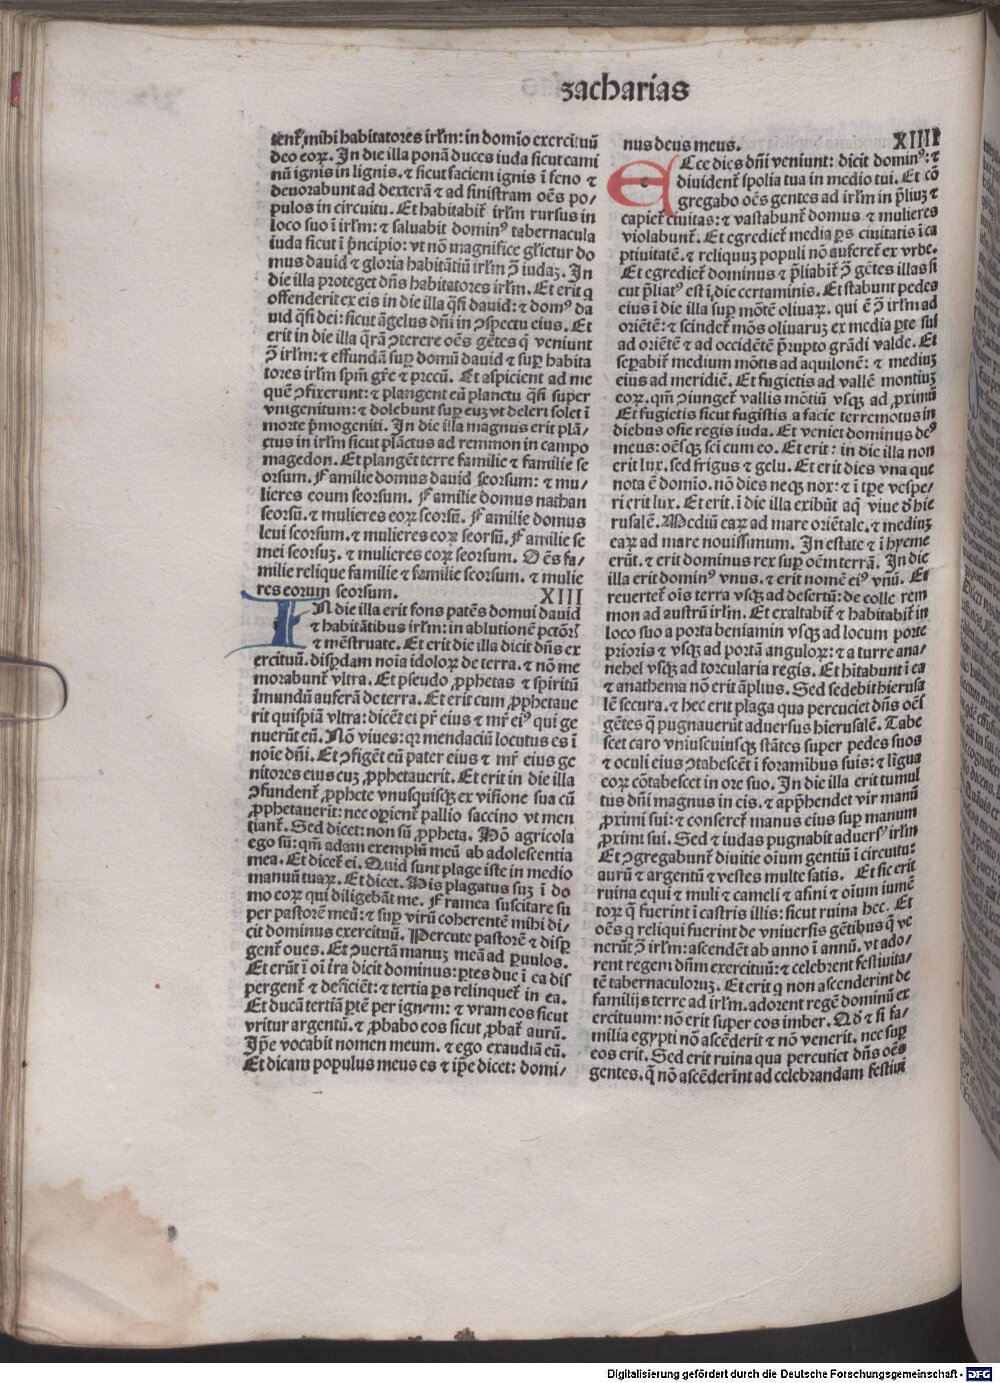 zacharias
tent᷑ mihi habitatores irl̃m: in domīo exercituū
deo eoꝝ. In die illa ponā duces iuda sicut cami
nū ignis in lignis. ⁊ sicut faciem ignis ī feno ⁊
deuorabunt ad dexterā ⁊ ad sinistram oēs po/
pulos in circuitu. Et habitabit᷑ irl̃m rursus in
loco suo ī irl̃m: ⁊ saluabit dominꝰ tabernacula
iuda sicut ī p̄ncipio: vt nō magnifice gl̃ietur do
mus dauid ⁊ gloria habitātiū irl̃m ꝯ̄ iudaꝫ. In
die illa proteget dn̄s habitatores irl̃m. Et erit q
offenderit ex eis in die illa q̄si dauid: ⁊ domꝰ da
uid q̄si dei: sicut āgelus dn̄i in ꝯspectu eius. Et
erit in die illa q̄rā ꝯterere oēs gētes q̄ veniunt
ꝯ̄ irl̃m: ⁊ effundā suꝑ domū dauid ⁊ suꝑ habita
tores irl̃m spm̄ gr̄e ⁊ preču. Et aspicient ad me
quē ꝯfixerunt: ⁊ plangent eū planctu q̄si super
vnigenitum: ⁊ dolebunt suꝑ euꝫ vt deleri solet ī
morte p̄mogeniti. In die illa magnus erit plā/
ctus in irl̃m sicut plāctus ad remmon in campo
magedon. Et plangēt terre familie ⁊ familie se
orsum. Familie domus dauid seorsum: ⁊ mu/
lieres eoum seorsum. Familie domus nathan
seorsū. ⁊ mulieres eoꝝ seorsū. Familie domus
leui seorsum. ⁊ mulieres eoꝝ seorsū. Familie se
mei seorsuꝫ. ⁊ mulieres eoꝝ seorsum. Oēs fa/
milie relique familie ⁊ familie seorsum. ⁊ mulie
res eorum seorsum. XIII
IN die illa erit fons patēs domui dauid
⁊ habitātibus irl̃m: in ablutionē pctōrꝫ
⁊ mēstruate. Et erit die illa dicit dn̄s ex
ercituū. disꝑdam noīa idoloꝝ de terra. ⁊ nō me
morabunt᷑ vltra. Et pseudo ꝓphetas ⁊ spiritū
īmundū auferā de terra. Et erit cum ꝓphetaue
rit quispiā vltra: dicēt ei pr̄ eius ⁊ mr̄ eiꝰ qui ge
nuerūt eū. Nō viues: qꝛ mendaciū locutus es ī
noīe dn̄i. Et ꝯfigēt eū pater eius ⁊ mr̄ eius ge
nitores eius cuꝫ ꝓphetauerit. Et erit in die illa
ꝯfundent᷑ ꝓphete vnusquisqꝫ ex visione sua cū
ꝓphetauerit: nec oꝑient᷑ pallio saccino vt men
tiant᷑. Sed dicet: non sū ꝓpheta. Hō agricola
ego sū: qm̄ adam exemplū meū ab adolescentia
mea. Et dicet᷑ ei. Quid sunt plage iste in medio
manuū tuaꝝ. Et dicet. His plagatus suꝫ ī do
mo eoꝝ qui diligebāt me. Framea suscitare su
per pastorē meū: ⁊ suꝑ virū coherentē mihi di/
cit dominus exercituū. Percute pastorē ⁊ disꝑ
gent᷑ oues. Et ꝯuertā manuꝫ meā ad ꝑuulos.
Et erūt ī oī t̄ra dicit dominus: ꝑtes due ī ea dis
pergent᷑ ⁊ deficiēt: ⁊ tertia ꝑs relinquet᷑ in ea.
Et ducā tertiā ꝑtē per ignem: ⁊ vram eos sicut
vritur argentū. ⁊ ꝓbabo eos sicut ꝓbat᷑ aurū.
Ip̄e vocabit nomen meum. ⁊ ego exaudiā eū.
Et dicam populus meus es ⁊ ip̄e dicet: domi/
nus deus meus. XIIII
Ecce dies dn̄i veniunt: dicit dominꝰ: ⁊
diuident᷑ spolia tua in medio tui. Et cō
gregabo oēs gentes ad irl̃m in p̄liuꝫ ⁊
capiet᷑ ciuitas: ⁊ vastabunt᷑ domus ⁊ mulieres
violabunt᷑. Et egrediet᷑ media ꝑs ciuitatis ī ca
ptiuitatē. ⁊ reliquuꝫ populi nō auferet᷑ ex vrbe.
Et egrediet᷑ dominus ⁊ p̄liabit᷑ ꝯ̄ gētes illas si
cut p̄liatꝰ est ī die certaminis. Et stabunt pedes
eius ī die illa suꝑ mōtē oliuaꝝ. qui ē ꝯ̄ irl̃m ad
oriētē: ⁊ scindet᷑ mōs oliuaruꝫ ex media ꝑte sui
ad oriētē ⁊ ad occidētē p̄rupto grādi valde. Et
seꝑabit᷑ medium mōtis ad aquilonē: ⁊ mediuꝫ
eius ad meridiē. Et fugietis ad vallē montiuꝫ
eoꝝ. qm̄ ꝯiunget᷑ vallis mōtiū vsqꝫ ad ꝓximū
Et fugietis sicut fugistis a facie terremotus in
diebus osie regis iuda. Et veniet dominus deꝰ
meus: oēsqꝫ sc̄i cum eo. Et erit: in die illa non
erit lux. sed frigus ⁊ gelu. Et erit dies vna que
nota ē domīo. nō dies neqꝫ nox: ⁊ ī tp̄e vespe/
ri erit lux. Et erit. ī die illa exibūt aq̄ viue ð hie
rusalē. Mediū eaꝝ ad mare oriētale. ⁊ mediuꝫ
eaꝝ ad mare nouissimum. In estate ⁊ ī hyeme
erūt. ⁊ erit dominus rex suꝑ oēm terrā. In die
illa erit dominꝰ vnus. ⁊ erit nomē eiꝰ vnū. Et
reuertet᷑ ois terra vsqꝫ ad desertū: de colle rem
mon ad austrū irl̃m. Et exaltabit᷑ ⁊ habitabit᷑ in
loco suo a porta beniamin vsqꝫ ad locum porte
prioris ⁊ vsqꝫ ad portā anguloꝝ: ⁊ a turre ana/
nehel vsqꝫ ad torcularia regis. Et hītabunt ī ea
⁊ anathema nō erit āplius. Sed sedebit hierusa
lē secura. ⁊ hec erit plaga qua percuciet dn̄s oēs
gētes q̄ pugnauerūt aduersus hierusalē. Tabe
scet caro vniuscuiusqꝫ stātes super pedes suos
⁊ oculi eius ꝯtabescēt ī foramībus suis: ⁊ līgua
eoꝝ cōtabescet in ore suo. In die illa erit tumul
tus dn̄i magnus in eis. ⁊ app̄hendet vir manū
ꝓximi sui: ⁊ conseret᷑ manus eius suꝑ manum
ꝓximi sui. Sed ⁊ iudas pugnabit aduersꝰ irl̃m
Et ꝯgregabunt᷑ diuitie oium gentiū ī circuitu:
aurū ⁊ argentū ⁊ vestes multe satis. Et sic erit
ruina equi ⁊ muli ⁊ cameli ⁊ asini ⁊ oium iumē
toꝝ q̄ fuerint ī castris illis: sicut ruina hec. Et
oēs q reliqui fuerint de vniuersis gētibus q̄ ve
nerūt ꝯ̄ irl̃m: ascendēt ab anno ī annū. vt ado/
rent regem dn̄m exercituū: ⁊ celebrent festiuita/
tē tabernaculoruꝫ. Et erit q non ascenderint de
familijs terre ad irl̃m. adorent regē dominū ex
ercituum: nō erit super eos imber. Qð ⁊ si fa/
milia egypti nō ascēderit ⁊ nō venerit. nec suꝑ
eos erit. Sed erit ruina qua percutiet dn̄s oēs
gentes. q̄ nō ascēderīnt ad celebrandam festiui
Digitalisierung gefördert durch die Deutsche Forschungsgemeinschaft - DFG